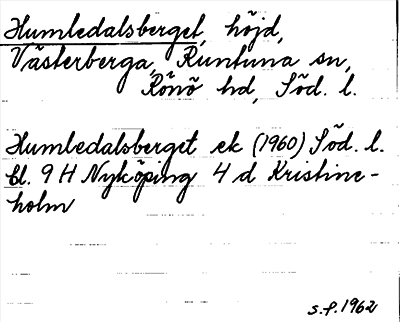 Humledalsberget, höjd,
Västerberga, Runtuna sn,
Rönö hd, Söd. l.
Humledalsberget ek (1960) Söd. l.
bl. 9 H Nyköping 4 d Kristine-
holm
s.f. 1962